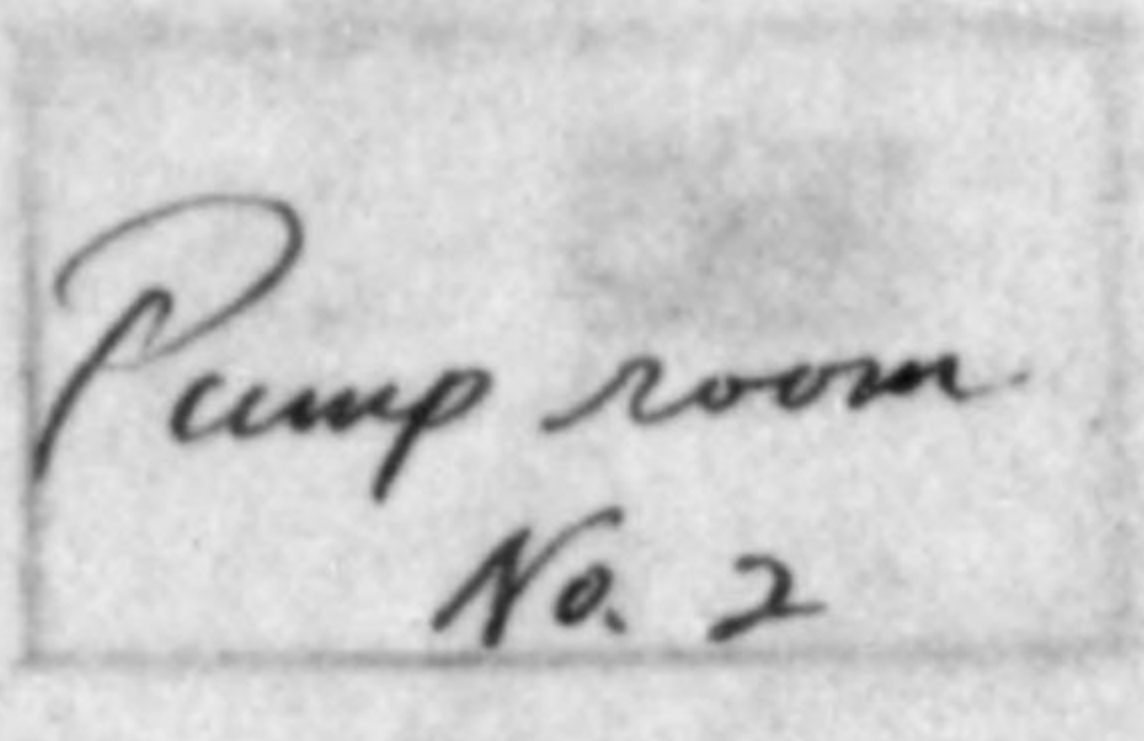 Pump room
No. 2